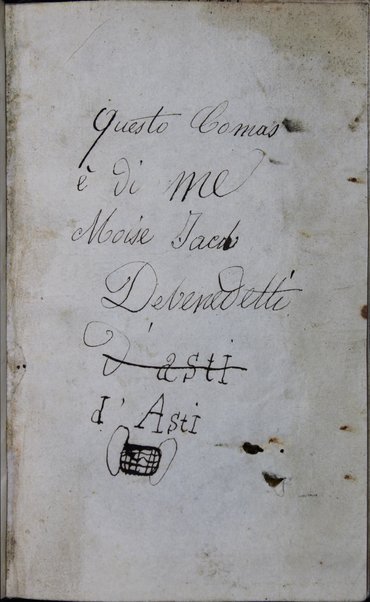 Questo Comas
è di me
Moise Jacob
Debenedetti
d'asti
d'Asti